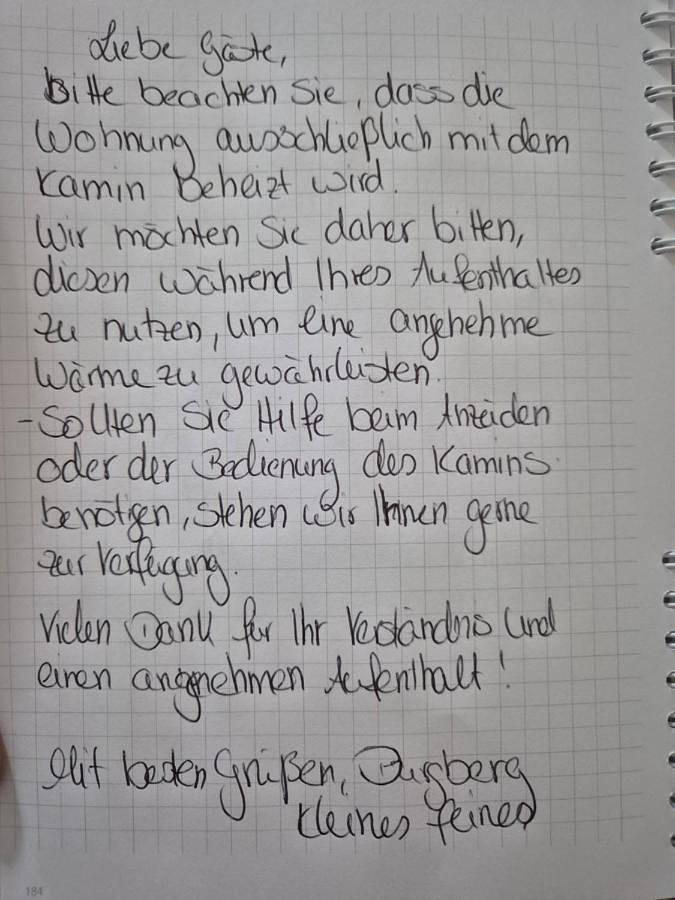 Liebe Gäste,
Bitte beachten Sie, dass die
Wohnung ausschließlich mit dem
Kamin Beheizt wird.
Wir möchten Sie daher bitten,
diesen während Ihres Aufenthaltes
zu nutzen, um eine angenehme
Wärme zu gewährleisten.
-Sollten Sie Hilfe beim Anzünden
oder der Bedienung des Kamins
benötigen, stehen wir Ihnen gerne
zur Verfügung.
Vielen Dank für Ihr Verständnis und
einen angenehmen Aufenthalt!
Mit besten Grüßen,
kleines feines
184